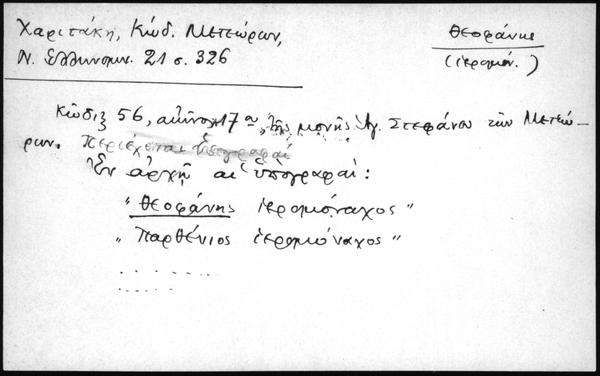 Χαριτάκη, Κώδ. Μετεώρων,
Ν. Ελληνομν. 21 σ. 326
Θεοφάνης
(ἱερομόν.)
Κῶδιξ 56, αἰῶνος 17ου, τῆς μονῆς Ἁγ. Στεφάνου τῶν Μετεώ-
ρων. Περιέχεται
Ἐν ἀρχῇ αἱ ὑπογραφαί:
"Θεοφάνης ἱερομόναχος"
"Παρθένιος ἱερομόναχος"